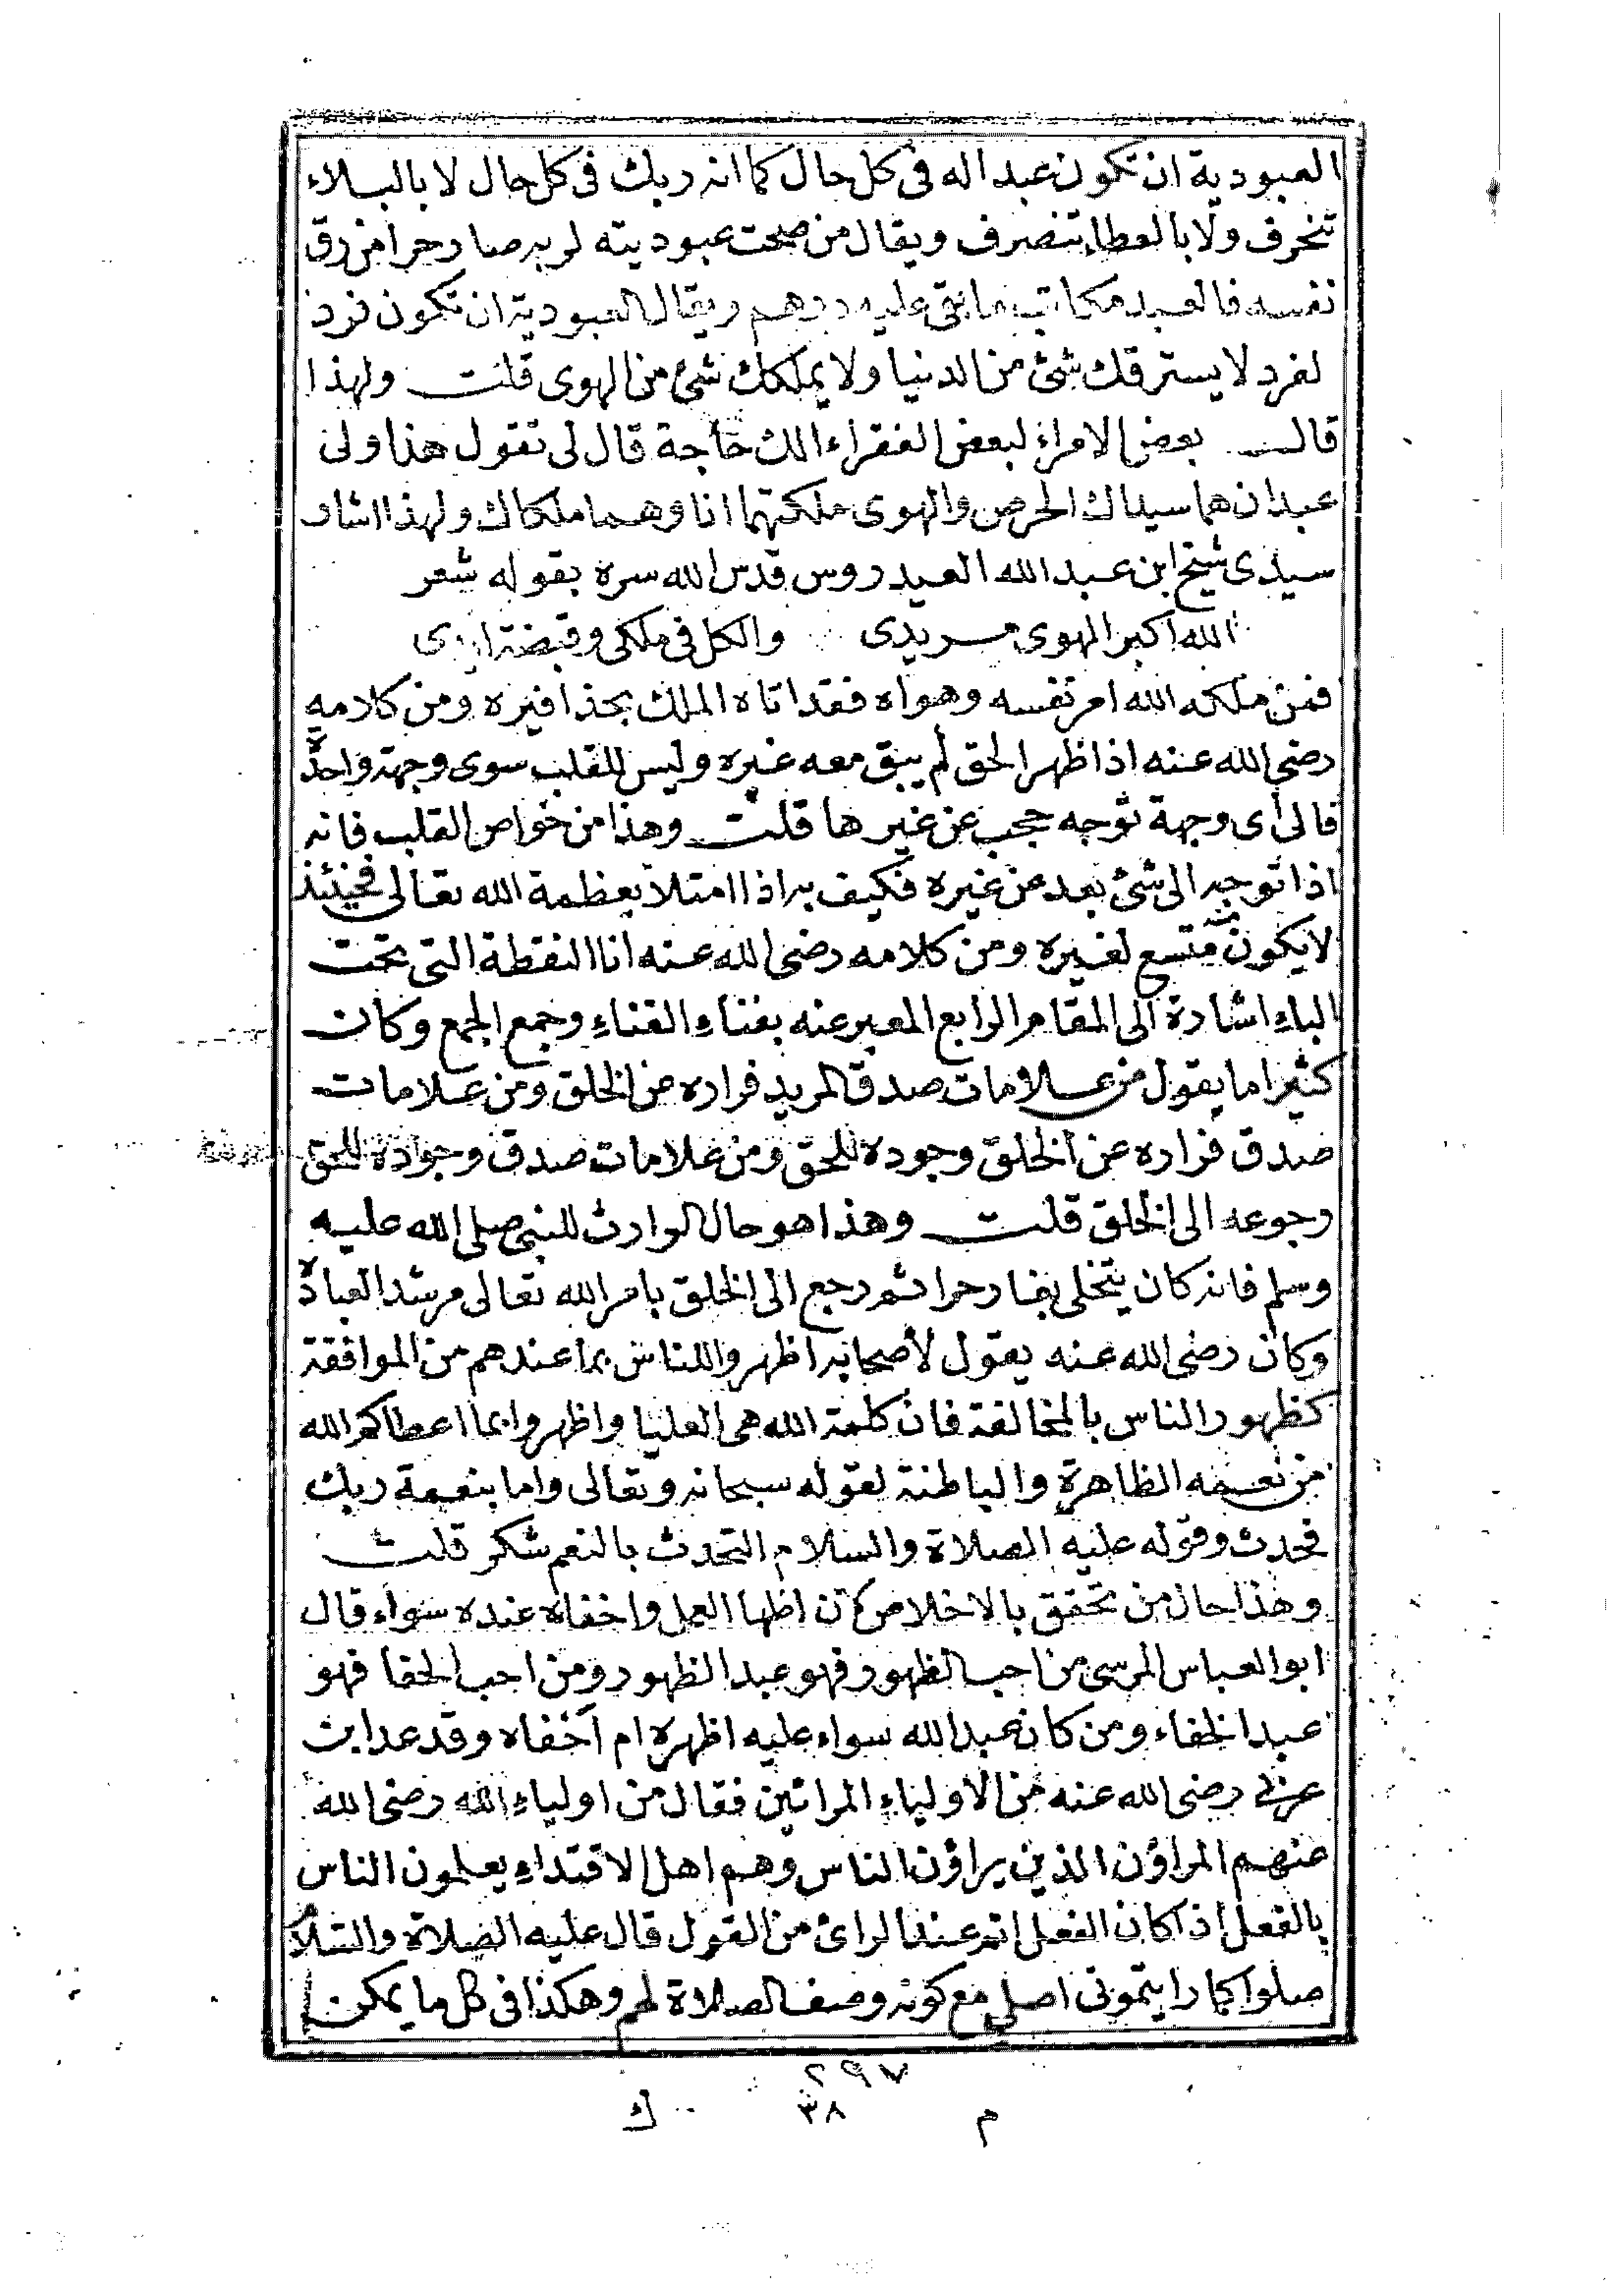 العبودية ان تكون عبدا له فى كل حال كما انه ربك فى كل حال لا بالبلاء
تنحرف ولا بالعطاء تنصرف ويقال من صحت عبوديته لربه صار حرا من رق
نفسه فالعبد مكاتب ما بقى عليه درهم ويقال العبودية ان تكون فرد
لفرد لا يسترقك شئ من الدنيا ولا يملكك شئ من الهوى قلت ولهذا
قال بعض الامراء لبعض الفقراء الك حاجة قال لى تقول هذا ولى
عبدان هما سيداك الحرص والهوى ملكتهما انا وهما ملكاك ولهذا اشار
سيدى شيخ ابن عبد الله العيدروس قدس الله سره بقوله شعر
الله اكبر الهوى مريدى والكل فى ملكى وقبضة ايدى
فمن ملكه الله امر نفسه وهواه فقد اتاه الملك بحذافيره ومن كلامه
رضى الله عنه اذا ظهر الحق لم يبق معه غيره وليس للقلب سوى وجهة واحدة
فالى أى وجهة توجه حجب عن غيرها قلت وهذا من خواص القلب فانه
اذا توجه الى شئ بعد عن غيره فكيف به اذا امتلأ بعظمة الله تعالى فحينئذ
لا يكون متسع لغيره ومن كلامه رضى الله عنه انا النقطة التى تحت
الباء اشارة الى المقام الرابع المعبر عنه بفناء الفناء وجمع الجمع وكان
كثيرا ما يقول من علامات صدق المريد فراره عن الخلق ومن علامات
صدق فراره عن الخلق وجوده للحق ومن علامات صدق وجوده للحق
رجوعه الى الخلق قلت وهذا هو حال الوارث للنبى صلى الله عليه
وسلم فانه كان يتخلى بغار حرا ثم رجع الى الخلق بامر الله تعالى مرشد العباده
وكان رضى الله عنه يقول لأصحابه اظهروا للناس بما عندهم من الموافقة
كظهور الناس بالمخالفة فان كلمة الله هى العليا واظهروا بما اعطاكم الله
من نعمه الظاهرة والباطنة لقوله سبحانه وتعالى واما بنعمة ربك
فحدث وقوله عليه الصلاة والسلام التحدث بالنعم شكر قلت
وهذا حال من تحقق بالاخلاص كان اظها العمل واخفاه عنده سواء قال
ابو العباس المرسى من احب الظهور فهو عبد الظهور ومن احب الخفا فهو
عبد الخفاء ومن كان عبد الله سواء عليه اظهره ام أخفاه وقد عد ابن
عربى رضى الله عنه من الاولياء المرائين فقال من اولياء الله رضى الله
عنهم المراؤن الذين يراؤن الناس وهم اهل الاقتداء يعلمون الناس
بالفعل اذ اكان الفعل اتم عند الرائ من القول قال عليه الصلاة والسلا
صلوا كما رايتمونى اصلى مع كونه وصف الصلاة لهم وهكذا فى كل ما يمكن
٢٩٧
م ٣٨ ك